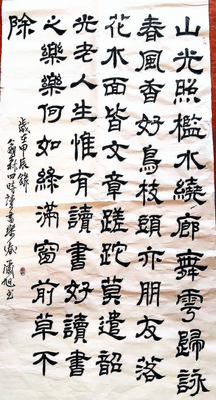 山光照檻水繞廊舞雩歸詠
春風香好鳥枝頭亦朋友落
花水面皆文章蹉跎莫遣韶
光老人生惟有讀書好讀書
之樂樂何如綠滿窗前草不
除
歲在甲辰錄
翁森四時讀書樂旭書